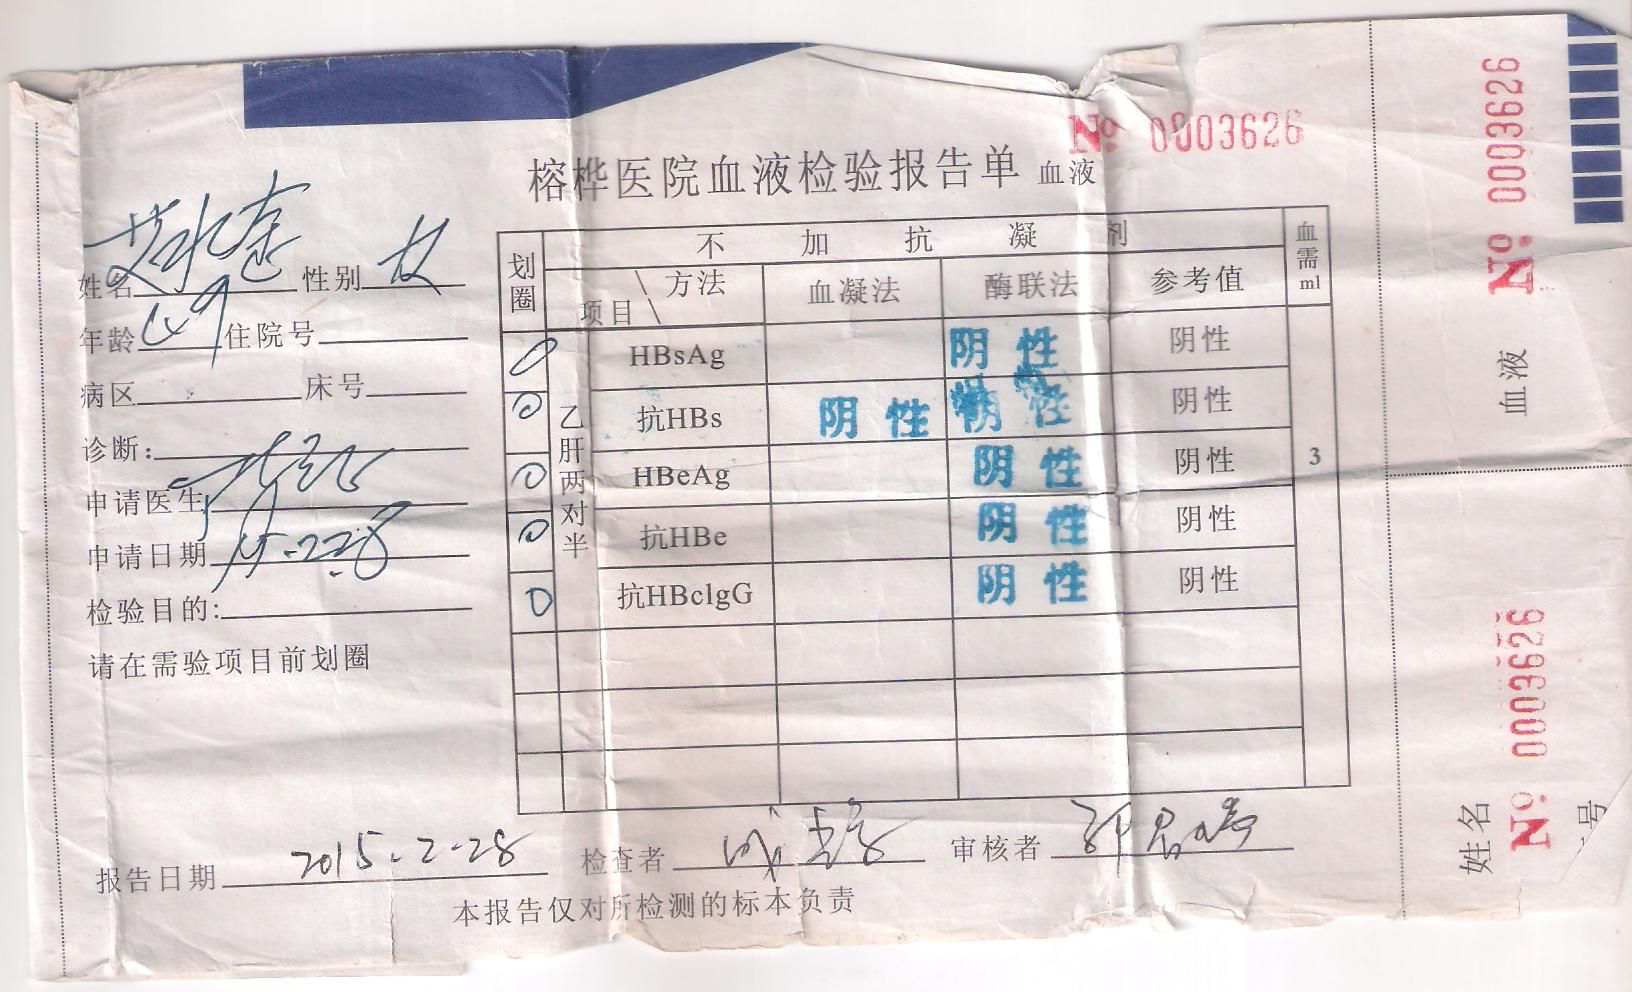 № 0003626
榕桦医院血液检验报告单 血液
姓名 性别 女
年龄 49 住院号
病区 床号
诊断:
申请医生
申请日期 15.2.28
检验目的:
请在需验项目前划圈
划圈 不加抗凝剂 血需ml
项目 \ 方法 血凝法 酶联法 参考值
乙肝两对半
HBsAg 阴性 阴性
抗HBs 阴性 阴性 阴性
HBeAg 阴性 阴性
抗HBe 阴性 阴性
抗HBclgG 阴性 阴性
3
报告日期 2015.2.28 检查者 审核者
本报告仅对所检测的标本负责
№ 0003626
血液
№ 0003626
姓名
号